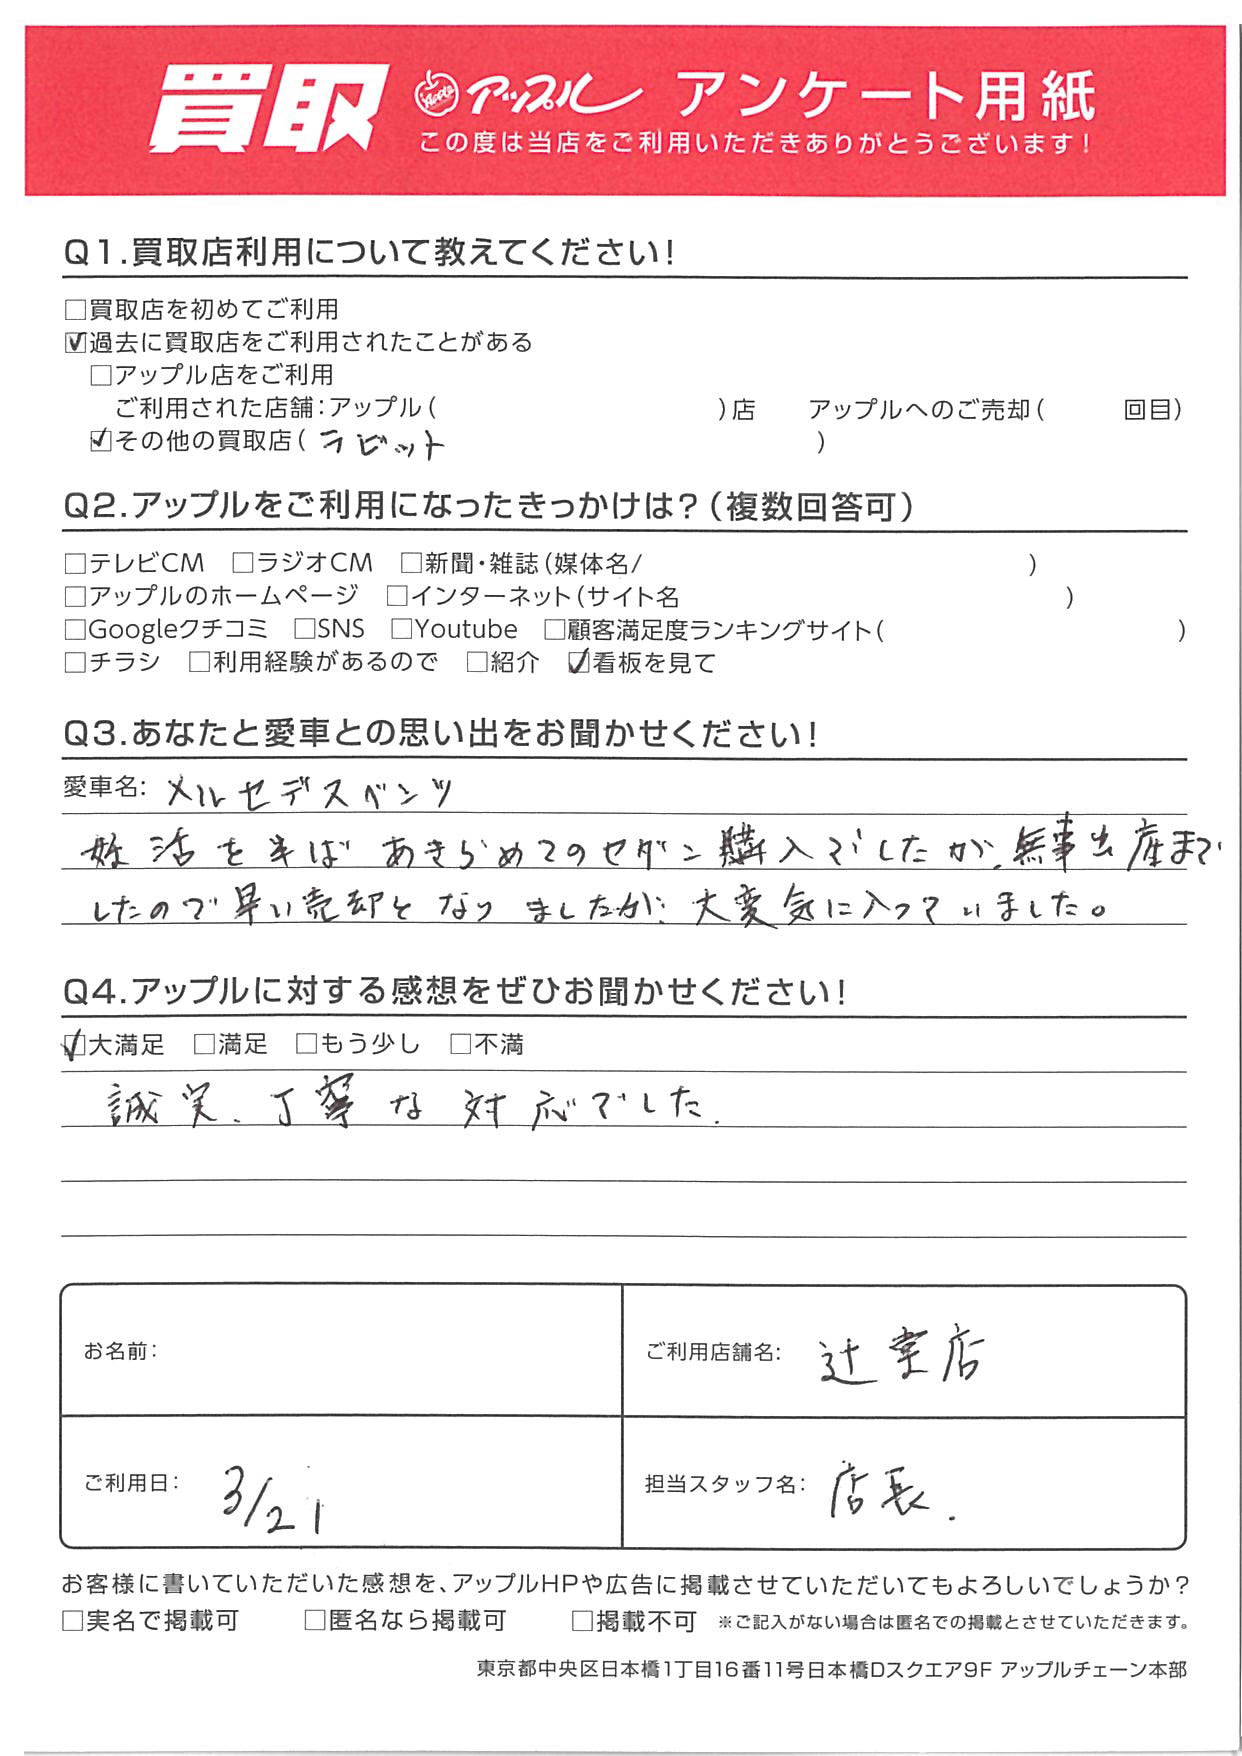 買取 Apple アップル アンケート用紙
この度は当店をご利用いただきありがとうございます!
Q1.買取店利用について教えてください!
□買取店を初めてご利用
☑過去に買取店をご利用されたことがある
□アップル店をご利用
ご利用された店舗:アップル( )店 アップルへのご売却( 回目)
☑その他の買取店( ラビット )
Q2.アップルをご利用になったきっかけは?(複数回答可)
□テレビCM □ラジオCM □新聞・雑誌(媒体名/ )
□アップルのホームページ □インターネット(サイト名 )
□Googleクチコミ □SNS □Youtube □顧客満足度ランキングサイト( )
□チラシ □利用経験があるので □紹介 ☑看板を見て
Q3.あなたと愛車との思い出をお聞かせください!
愛車名: メルセデスベンツ
妊活を半ばあきらめてのセダン購入でしたが、無事出産まで
したので早い売却となりましたが、大変気に入っていました。
Q4.アップルに対する感想をぜひお聞かせください!
☑大満足 □満足 □もう少し □不満
誠実、丁寧な対応でした.
お名前: ご利用店舗名: 辻堂店
ご利用日: 3/21 担当スタッフ名: 店長.
お客様に書いていただいた感想を、アップルHPや広告に掲載させていただいてもよろしいでしょうか?
□実名で掲載可 □匿名なら掲載可 □掲載不可 ※ご記入がない場合は匿名での掲載とさせていただきます。
東京都中央区日本橋1丁目16番11号日本橋Dスクエア9F アップルチェーン本部